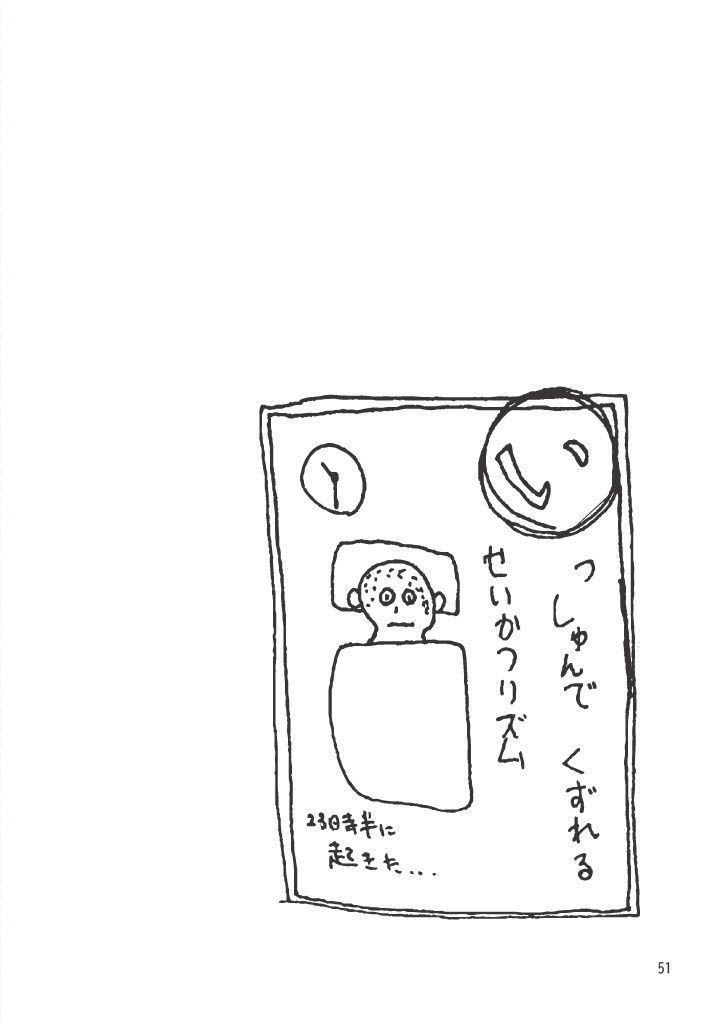 い
っしゅんで くずれる
せいかつリズム
23時半に
起きた...
51